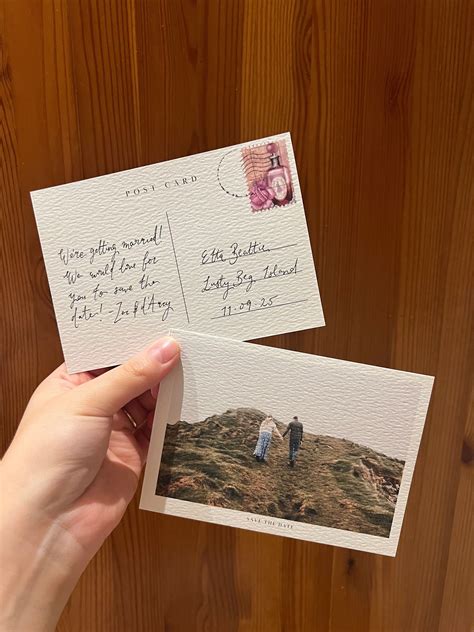 POST CARD
We're getting married!
We would love for
you to save the
date! - Zoe & d'Arcy
Etta Beattie
Lusty Beg Island
19.09.25
SAVE THE DATE